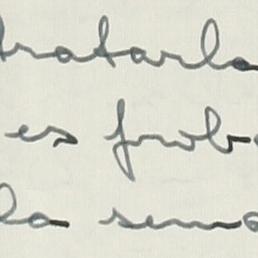 tratarla
es prob
la sema